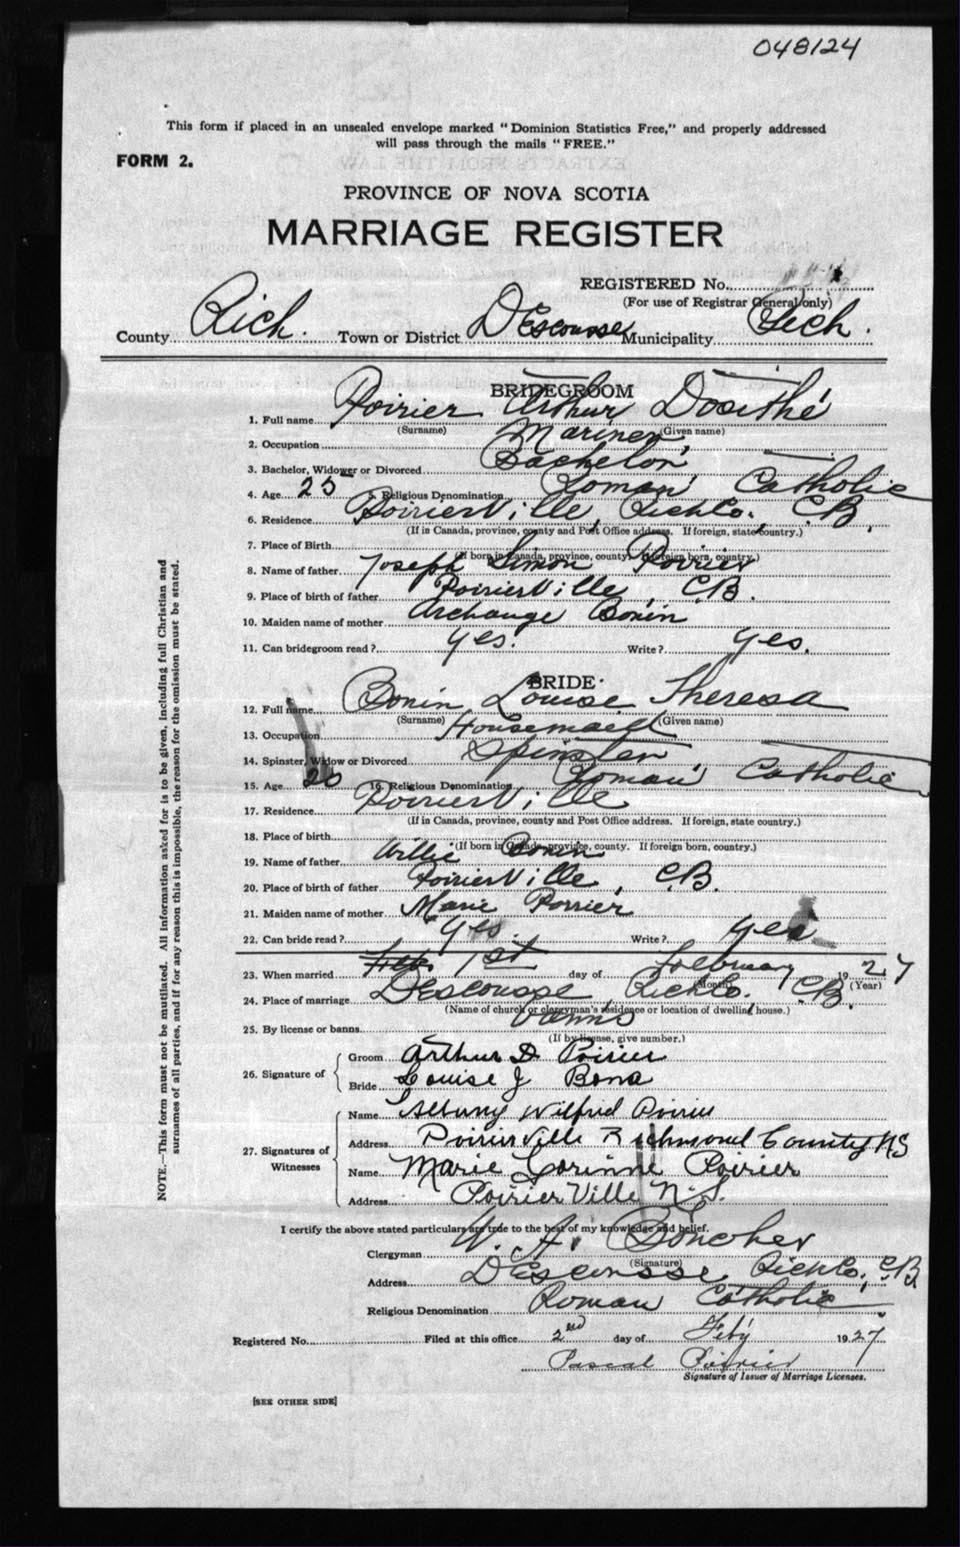 048124
This form if placed in an unsealed envelope marked "Dominion Statistics Free," and properly addressed
will pass through the mails "FREE."
FORM 2.
PROVINCE OF NOVA SCOTIA
MARRIAGE REGISTER
REGISTERED No.
(For use of Registrar General only)
County Rich. Town or District D'Escousse Municipality Rich.
BRIDEGROOM
1. Full name Poirier Arthur Dosithé
(Surname) (Given name)
2. Occupation Mariner
3. Bachelor, Widower or Divorced Bachelor
4. Age 25 5. Religious Denomination Roman Catholic
6. Residence PoirierVille, Rich Co. C.B.
(If in Canada, province, county and Post Office address. If foreign, state country.)
7. Place of Birth
(If born in Canada, province, county. If foreign born, country.)
8. Name of father Joseph Simon Poirier
9. Place of birth of father PoirierVille, C.B.
10. Maiden name of mother Archange Bonin
11. Can bridegroom read? Yes. Write? Yes.
BRIDE
12. Full name Bonin Louise Theresa
(Surname) (Given name)
13. Occupation Housemaid
14. Spinster, Widow or Divorced Spinster
15. Age 20 16. Religious Denomination Roman Catholic
17. Residence PoirierVille
(If in Canada, province, county and Post Office address. If foreign, state country.)
18. Place of birth
(If born in Canada, province, county. If foreign born, country.)
19. Name of father Willie Bonin
20. Place of birth of father PoirierVille, C.B.
21. Maiden name of mother Marie Poirier
22. Can bride read? Yes. Write? Yes
23. When married 1st day of February 1927
(Month) (Year)
24. Place of marriage D'Escousse, Rich Co. C.B.
(Name of church or clergyman's residence or location of dwelling house.)
25. By license or banns Banns
(If by license, give number.)
26. Signature of Groom Arthur D Poirier
Bride Louise J Bona
27. Signatures of Witnesses Name Wilfred Poirier
Address PoirierVille Richmond County NS
Name Marie Corinne Poirier
Address PoirierVille N.S.
I certify the above stated particulars are true to the best of my knowledge and belief.
Clergyman W. A.
(Signature)
Address D'Escousse, Rich Co., C.B.
Religious Denomination Roman Catholic
Registered No. Filed at this office 2nd day of Feby 1927
Pascal Poirier
Signature of Issuer of Marriage Licenses.
[SEE OTHER SIDE]
NOTE.—This form must not be mutilated. All information asked for is to be given, including full Christian and
surnames of all parties, and if for any reason this is impossible, the reason for the omission must be stated.